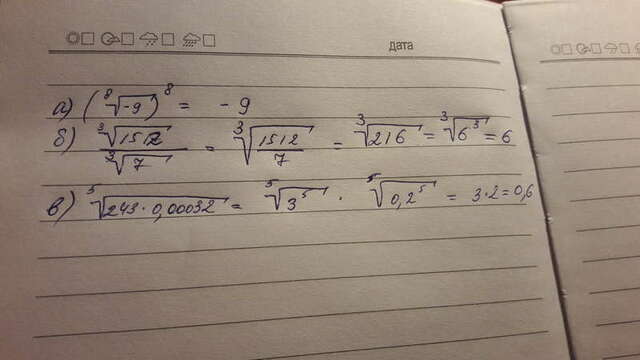 дата
а) (⁸√-9)⁸ = - 9
б) ³√1512 / ³√7 = ³√1512/7 = ³√216 = ³√6³ = 6
в) ⁵√243·0,00032 = ⁵√3⁵ · ⁵√0,2⁵ = 3·2=0,6